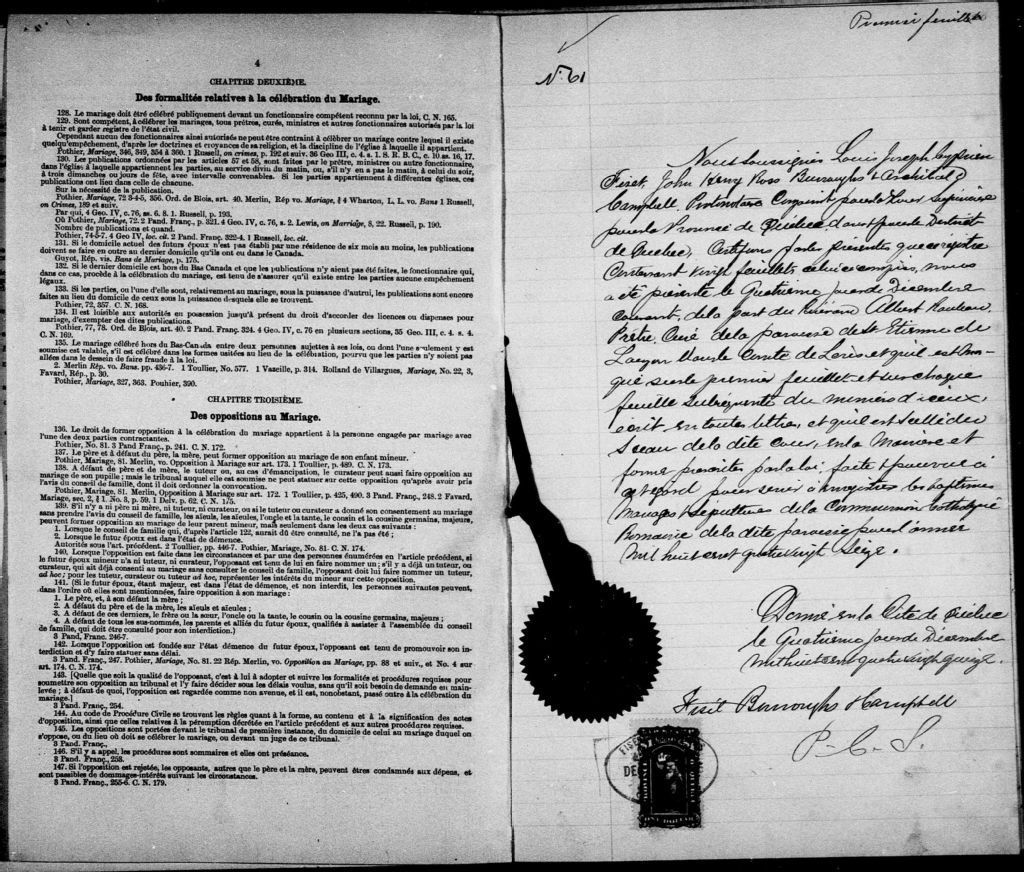 4
CHAPITRE DEUXIÈME.
Des formalités relatives à la célébration du Mariage.
128. Le mariage doit être célébré publiquement devant un fonctionnaire compétent reconnu par la loi, C. N. 165.
129. Sont compétent, à célébrer les mariages, tous prêtres, curés, ministres et autres fonctionnaires autorisés par la loi
à tenir et garder registre de l'état civil.
Cependant aucun des fonctionnaires ainsi autorisés ne peut être contraint à célébrer un mariage contre lequel il existe
quelqu'empêchement, d'après les doctrines et croyances de sa religion, et la discipline de l'église à laquelle il appartient.
Pothier, Mariage, 346, 349, 354 à 360. 1 Russell, on crimes, p. 192 et suiv. 36 Geo III, c. 4. s. 1. S. R. B. C., c. 10. ss. 16, 17.
130. Les publications ordonnées par les articles 57 et 58, sont faites par le prêtre, ministre ou autre fonctionnaire,
dans l'église à laquelle appartiennent les parties, au service divin du matin, ou, s'il n'y en a pas le matin, à celui du soir,
à trois dimanches ou jours de fête, avec intervalle convenables. Si les parties appartiennent à différentes églises, ces
publications ont lieu dans celle de chacune.
Sur la nécessité de la publication.
Pothier, Mariage, 72 3-4-5, 356. Ord. de Blois, art. 40. Merlin, Rép vo. Mariage, § 4 Wharton, L. L. vo. Bans 1 Russell,
on Crimes, 189 et suiv.
Par qui, 4 Geo. IV, c. 76, ss. 6. 8. 1. Russell, p. 193.
Où Pothier, Mariage, 72. 2 Pand. Franç., p. 321. 4 Geo. IV, c. 76, s. 2. Lewis, on Marriage, 8, 22. Russell, p. 190.
Nombre de publications et quand.
Pothier, 74-5-7. 4 Geo IV, loc. cit. 2 Pand. Franç. 322-4. 1 Russell, loc. cit.
131. Si le domicile actuel des futurs époux n'est pas établi par une résidence de six mois au moins, les publications
doivent se faire en outre au dernier domicile qu'ils ont eu dans le Canada.
Guyot, Rép. vis. Bans de Mariage, p. 175.
132. Si le dernier domicile est hors du Bas Canada et que les publications n'y aient pas été faites, le fonctionnaire qui,
dans ce cas, procède à la célébration du mariage, est tenu de s'assurer qu'il existe entre les parties aucune empêchement
légaux.
133. Si les parties, ou l'une d'elle sont, relativement au mariage, sous la puissance d'autrui, les publications sont encore
faites au lieu du domicile de ceux sous la puissance desquels elle se trouvent.
Pothier, 72, 357. C. N. 168.
134. Il est loisible aux autorités en possession jusqu'à présent du droit d'accorder des licences ou dispenses pour
mariage, d'exempter des dites publications.
Pothier, 77, 78. Ord. de Blois, art. 40. 2 Pand. Franç. 324. 4 Geo. IV, c. 76 en plusieurs sections, 35 Geo. III, c. 4. s. 4.
C. N. 169.
135. Le mariage célébré hors du Bas-Canada entre deux personnes sujettes à ses lois, ou dont l'une seulement y est
soumise est valable, s'il est célébré dans les formes usitées au lieu de la célébration, pourvu que les parties n'y soient pas
allées dans le dessein de faire fraude à la loi.
2. Merlin Rép. vo. Bans. pp. 436-7. 1 Toullier, No. 577. 1 Vazeille, p. 314. Rolland de Villargues, Mariage, No. 22, 3,
Favard, Rép., p. 30.
Pothier, Mariage, 327, 363. Pouhier, 390.
CHAPITRE TROISIÈME.
Des oppositions au Mariage.
136. Le droit de former opposition à la célébration du mariage appartient à la personne engagée par mariage avec
l'une des deux parties contractantes.
Pothier, No. 81. 3 Pand Franç., p. 241. C. N. 172.
137. Le père et à défaut du père, la mère, peut former opposition au mariage de son enfant mineur.
Pothier, Mariage, 81. Merlin, vo. Opposition à Mariage sur art. 173. 1 Toullier, p. 489. C. N. 173.
138. A défaut de père et de mère, le tuteur ou, au cas d'émancipation, le curateur peut aussi faire opposition au
mariage de son pupille; mais le tribunal auquel elle est soumise ne peut statuer sur cette opposition qu'après avoir pris
l'avis du conseil de famille, dont il doit ordonner la convocation.
Pothier, Mariage, 81. Merlin, Opposition à Mariage sur art. 172. 1 Toullier, p. 425, 490. 3 Pand. Franç., 248. 2 Favard,
Mariage, sec. 2, § 1. No. 3, p. 59. 1 Delv. p. 62. C. N. 175.
139. S'il n'y a ni père ni mère, ni tuteur, ni curateur, ou si le tuteur ou curateur a donné son consentement au mariage
sans prendre l'avis du conseil de famille, les aïeuls, les aïeules, l'oncle et la tante, le cousin et la cousine germains, majeurs,
peuvent former opposition au mariage de leur parent mineur, mais seulement dans les deux cas suivants:
1. Lorsque le conseil de famille qui, d'après l'article 122, aurait dû être consulté, ne l'a pas été;
2. Lorsque le futur époux est dans l'état de démence.
Autorités sous l'art. précédent. 2 Toullier, pp. 446-7. Pothier, Mariage, No. 81. C. N. 174.
140. Lorsque l'opposition est faite dans les circonstances et par une des personnes énumérées en l'article précédent, si
le futur époux mineur n'a ni tuteur, ni curateur, l'opposant est tenu de lui en faire nommer un; s'il y a déjà un tuteur, ou
curateur, qui ait déjà consenti au mariage sans consulter le conseil de famille, l'opposant doit lui faire nommer un tuteur,
ad hoc; pour les tuteur, curateur ou tuteur ad hoc, représenter les intérêts du mineur sur cette opposition.
141. (Si le futur époux, étant majeur, est dans l'état de démence, et non interdit, les personnes suivantes peuvent,
dans l'ordre où elles sont mentionnées, faire opposition à son mariage:
1. Le père, et, à son défaut la mère;
2. A défaut du père et de la mère, les aïeuls et aïeules;
3. A défaut de ces derniers, le frère ou la sœur, l'oncle ou la tante, le cousin ou la cousine germains, majeurs;
4. A défaut de tous les sus-nommés, les parents et alliés du futur époux, qualifiés à assister à l'assemblée du conseil
de famille, qui doit être consulté pour son interdiction.)
3 Pand, Franc. 246-7.
142. Lorsque l'opposition est fondée sur l'état démence du futur époux, l'opposant est tenu de promouvoir son in-
terdiction et d'y faire statuer sans délai.
3 Pand. Franç., 247. Pothier, Mariage, No. 81. 22 Rép. Merlin, vo. Opposition au Mariage, pp. 88 et suiv., et No. 4 sur
art. 174. C. N. 174.
143. [Quelle que soit la qualité de l'opposant, c'est à lui à adopter et suivre les formalités et procédures requises pour
soumettre son opposition au tribunal et l'y faire décider sous les délais voulus, sans qu'il soit besoin de demande en main-
levée; à défaut de quoi, l'opposition est regardée comme non avenue, et il est, nonobstant, passé outre à la célébration du
mariage.]
3 Pand. Franç., 254.
144. Au code de Procédure Civile se trouvent les règles quant à la forme, au contenu et à la signification des actes
d'opposition, ainsi que celles relatives à la péremption décrétée en l'article précédent et aux autres procédures requises.
145. Les oppositions sont portées devant le tribunal de première instance, du domicile de celui au mariage duquel on
s'oppose, ou du lieu où doit se célébrer le mariage, ou devant un juge de ce tribunal.
3 Pand. Franç.,
146. S'il y a appel, les procédures sont sommaires et elles ont préséance.
3 Pand. Franç., 258.
147. Si l'opposition est rejetée, les opposants, autres que le père et la mère, peuvent être condamnés aux dépens, et
sont passibles de dommages-intérêts suivant les circonstances.
3 Pand. Franç., 255-6. C. N. 179.
Premier feuillet
N° 61
Nous soussignés Louis Joseph Cyprien
Fiset, John Henry Ross Burroughs & Archibald
Campbell Protonotaire Conjoint pour la Cour Supérieure
pour la Province de Québec, dans & pour le District
de Québec, Certifions par les présentes que ce registre
Contenant Vingt feuillets, celui ci compris, nous
a été présenté le Quatrième jour de Décembre
Courant, de la part du Révérend Albert Rouleau
Prêtre, Curé de la paroisse de St Etienne de
Lauzon dans le Comté de Lévis, et qu'il est mar-
qué sur le premier feuillet et sur chaque
feuille subséquente du numéro d'iceux,
écrit en toutes lettres, et qu'il est scellé du
Sceau de la dite Cour, en la manière et
forme prescrites par la loi, faite & pourvue à
cet égard pour servir à enregistrer les baptêmes
Mariages & Sépultures de la Communion Catholique
Romaine de la dite paroisse pour l'année
Mil huit cent quatre vingt Seize.
Donné en la Cité de Québec
le Quatrième jour de Décembre
Mil huit cent quatre vingt quinze.
Fiset Burroughs & Campbell
P. C. S.
ONE DOLLAR